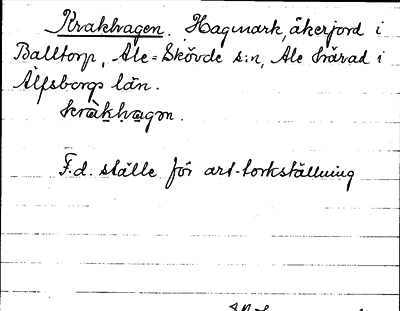 Krakhagen. Hagmark, åkerjord i
Balltorp, Ale-Skövde s:n, Ale härad i
Älfsborgs län.
kràkhagən.
F.d. ställe för art-torkställning